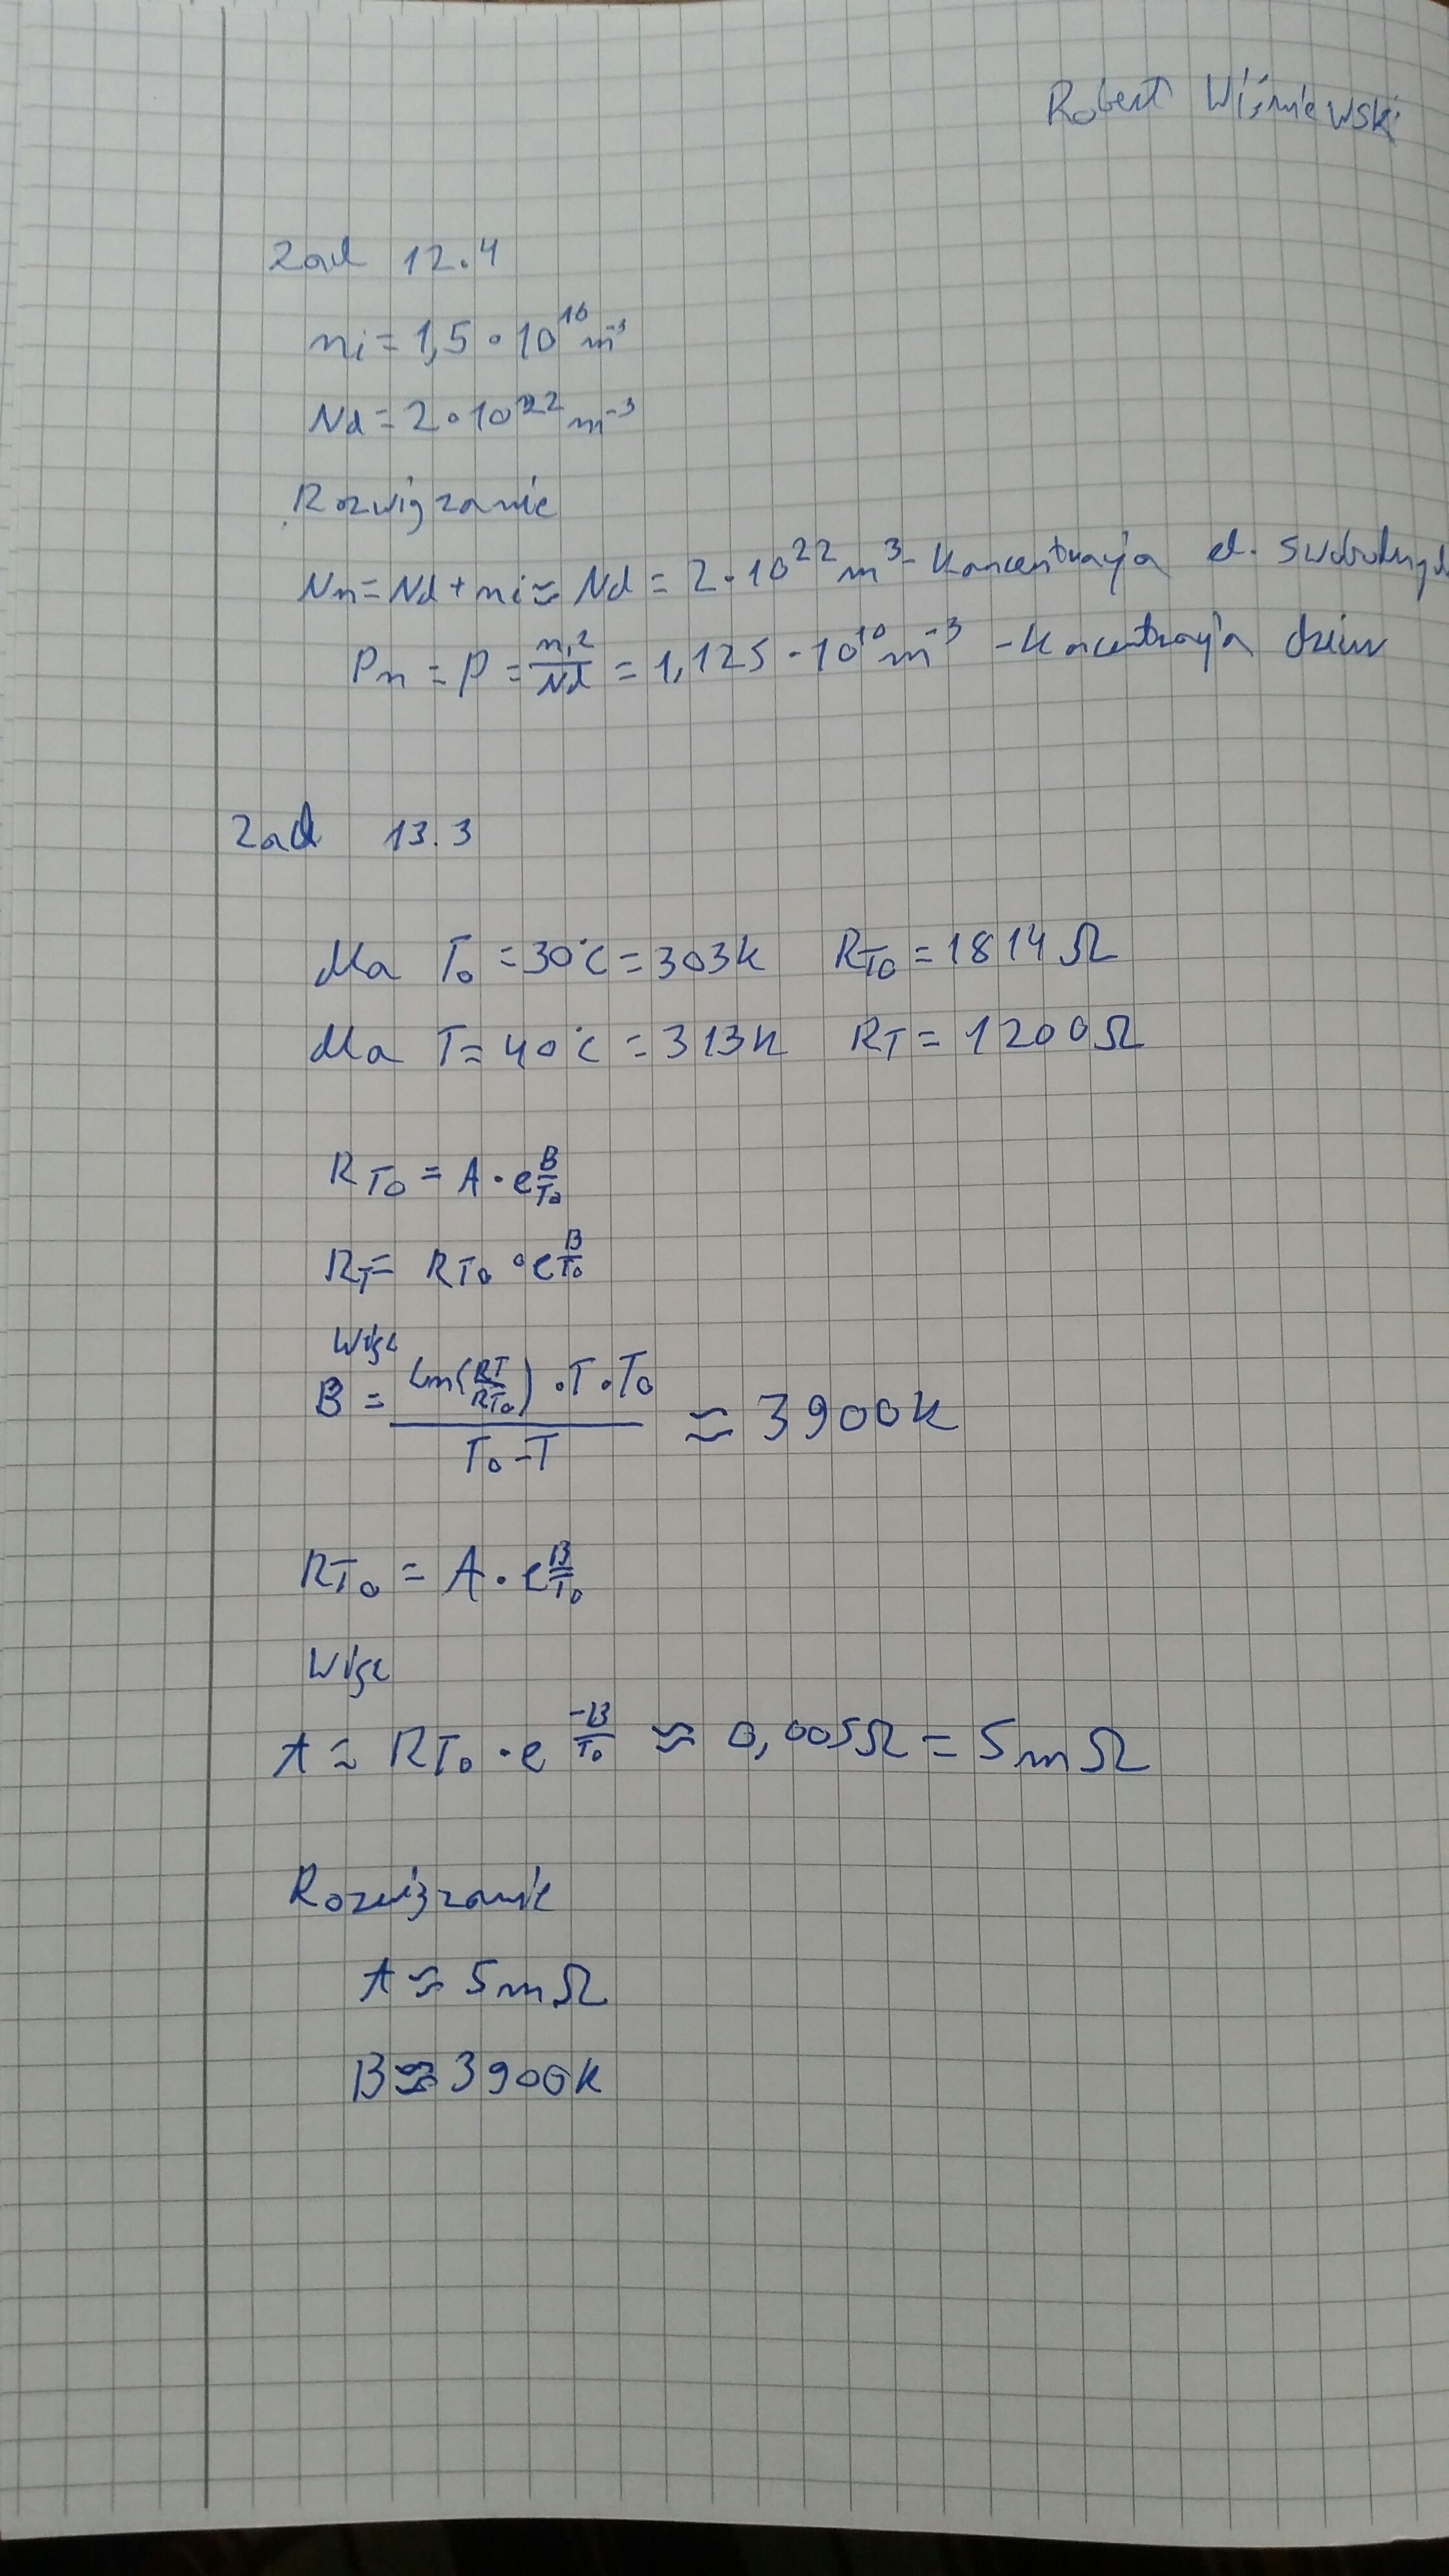 Robert Wiśniewski
Zad 12.4
ni = 1,5 · 10^16 m^-3
Nd = 2 · 10^22 m^-3
Rozwiązanie
Nn = Nd + ni ≈ Nd = 2 · 10^22 m^3 - koncentracja el. swobodnych
Pn = p = ni^2/Nd = 1,125 · 10^10 m^-3 - koncentracja dziur
Zad 13.3
Dla T0 = 30°C = 303K RT0 = 1814 Ω
Dla T = 40°C = 313K RT = 1200 Ω
RT0 = A · e^(B/T0)
RT = RT0 · e^(B/T0)
Więc
B = (ln(RT/RT0) · T · T0)/(T0 - T) ≈ 3900K
RT0 = A · e^(B/T0)
Więc
A ≈ RT0 · e^(-B/T0) ≈ 0,005Ω = 5mΩ
Rozwiązanie
A ≈ 5mΩ
B ≈ 3900K